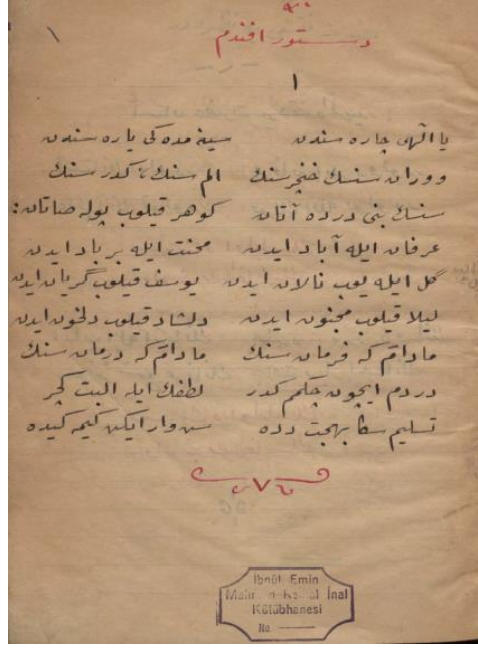 ٩٠
١
دستور افندم
١
يا الهى چاره سندن سينه مده كى ياره سندن
ووران سنسك خنجر سنك الم سنك كدر سنك
سنسك بنى درده آتان كوهر قيلوب پوله صاتان
عرفان ايله آباد ايدن محنت ايله برباد ايدن
گل ايله يوب نالان ايدن يوسف قيلوب گريان ايدن
ليلا قيلوب مجنون ايدن دلشاد قيلوب دلخون ايدن
مادام كه فرمان سنك مادام كه درمان سنك
دردم ايچون چكمم كدر لطفك ايله البت كچر
تسليم سكا بهجت دده سن وار ايكن كيمه كيده
٧
İbnül Emin
Mahmud Kemal İnal
Kütübhanesi
No.